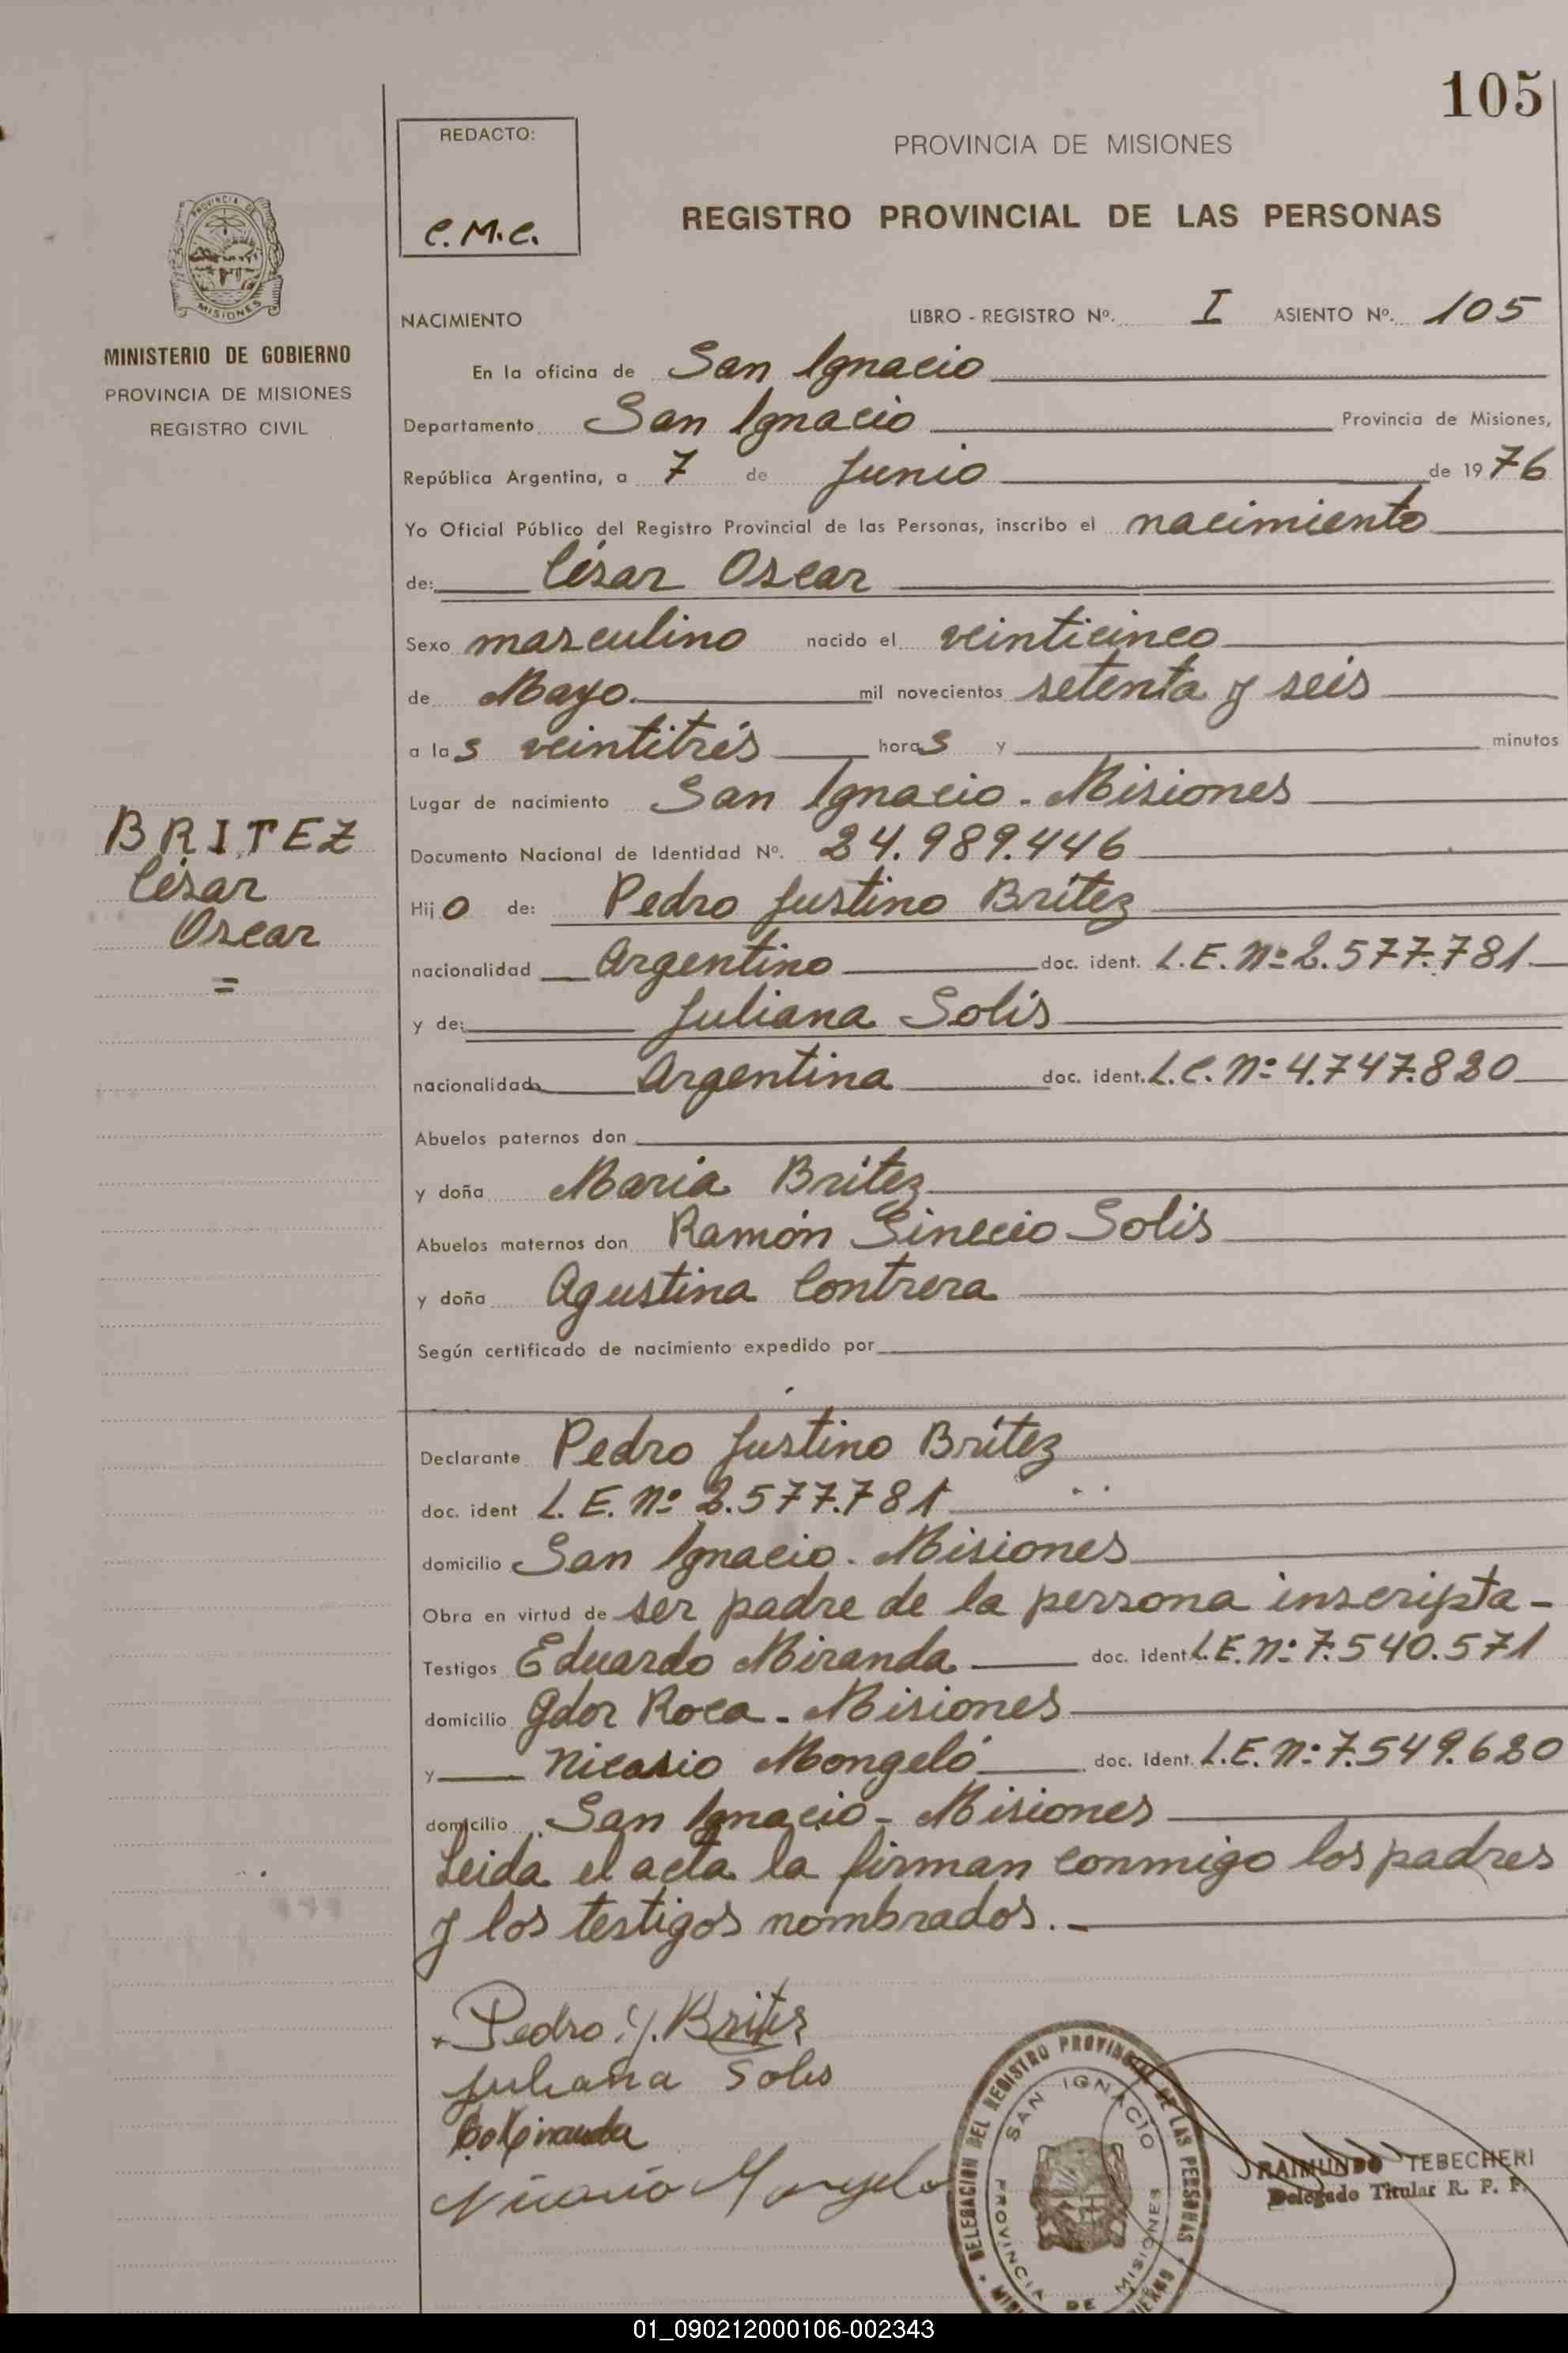 105
REDACTO:
C.M.C.
PROVINCIA DE MISIONES
REGISTRO PROVINCIAL DE LAS PERSONAS
PROVINCIA DE
MISIONES
MINISTERIO DE GOBIERNO
PROVINCIA DE MISIONES
REGISTRO CIVIL
NACIMIENTO LIBRO - REGISTRO Nº. I ASIENTO Nº. 105
En la oficina de San Ignacio
Departamento San Ignacio Provincia de Misiones,
República Argentina, a 7 de Junio de 1976
Yo Oficial Público del Registro Provincial de las Personas, inscribo el nacimiento
de: César Oscar
Sexo masculino nacido el veinticinco
de Mayo. mil novecientos setenta y seis
a las veintitrés horas y minutos
Lugar de nacimiento San Ignacio - Misiones
BRITEZ
César
Oscar
=
Documento Nacional de Identidad Nº. 24.989.446
Hijo de: Pedro Justino Britez
nacionalidad Argentino doc. ident. L.E. Nº 2.577.781
y de: Juliana Solis
nacionalidad Argentina doc. ident. L.C. Nº 4.747.820
Abuelos paternos don
y doña Maria Britez
Abuelos maternos don Ramón Sinecio Solis
y doña Agustina Contrera
Según certificado de nacimiento expedido por
Declarante Pedro Justino Britez
doc. ident L.E. Nº 2.577.781
domicilio San Ignacio. Misiones
Obra en virtud de ser padre de la persona inscripta-
Testigos Eduardo Miranda doc. ident L.E. Nº 7.540.571
domicilio Gdor Roca - Misiones
y Nicasio Mongeló doc. Ident. L.E. Nº 7.549.620
domicilio San Ignacio - Misiones
Leida el acta la firman conmigo los padres
y los testigos nombrados.-
Pedro J. Britez
Juliana Solis
Nicasio Mongelo
DELEGACION DEL REGISTRO PROVINCIAL DE LAS PERSONAS
SAN IGNACIO
PROVINCIA DE MISIONES
RAIMUNDO TEBECHERI
Delegado Titular R. P. P.
01_090212000106-002343